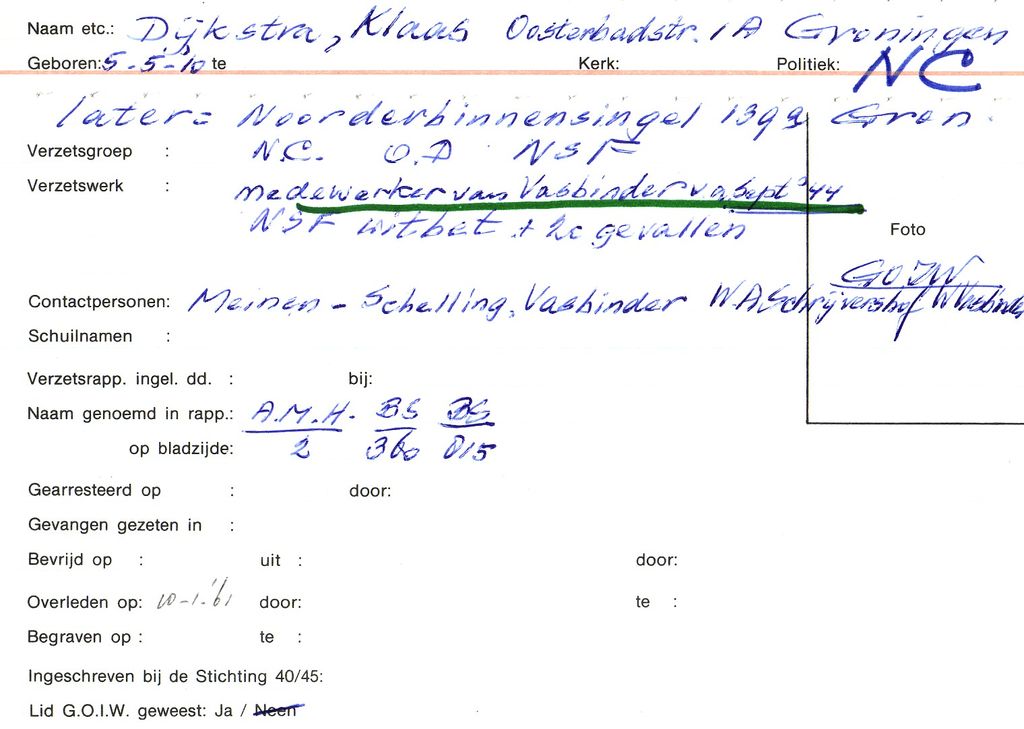 Naam etc.: Dijkstra, Klaas Oosterbadstr. 1A Groningen
Geboren: 5-5-'10 te Kerk: Politiek: NC
later= Noorderbinnensingel Gron.
Verzetsgroep : N.C. O.D NSF
Verzetswerk : medewerker van Vasbinder va Sept '44
NSF uitbet + 2c gevallen
Foto
G.O.I.W
Contactpersonen: Meinen - Schelling, Vasbinder W.A Schrijvershof
Schuilnamen :
Verzetsrapp. ingel. dd. : bij:
Naam genoemd in rapp.: A.M.H. BS BS
op bladzijde: 2 360 815
Gearresteerd op : door:
Gevangen gezeten in :
Bevrijd op : uit : door:
Overleden op: 10-1-'61 door: te :
Begraven op : te :
Ingeschreven bij de Stichting 40/45:
Lid G.O.I.W. geweest: Ja / Neen